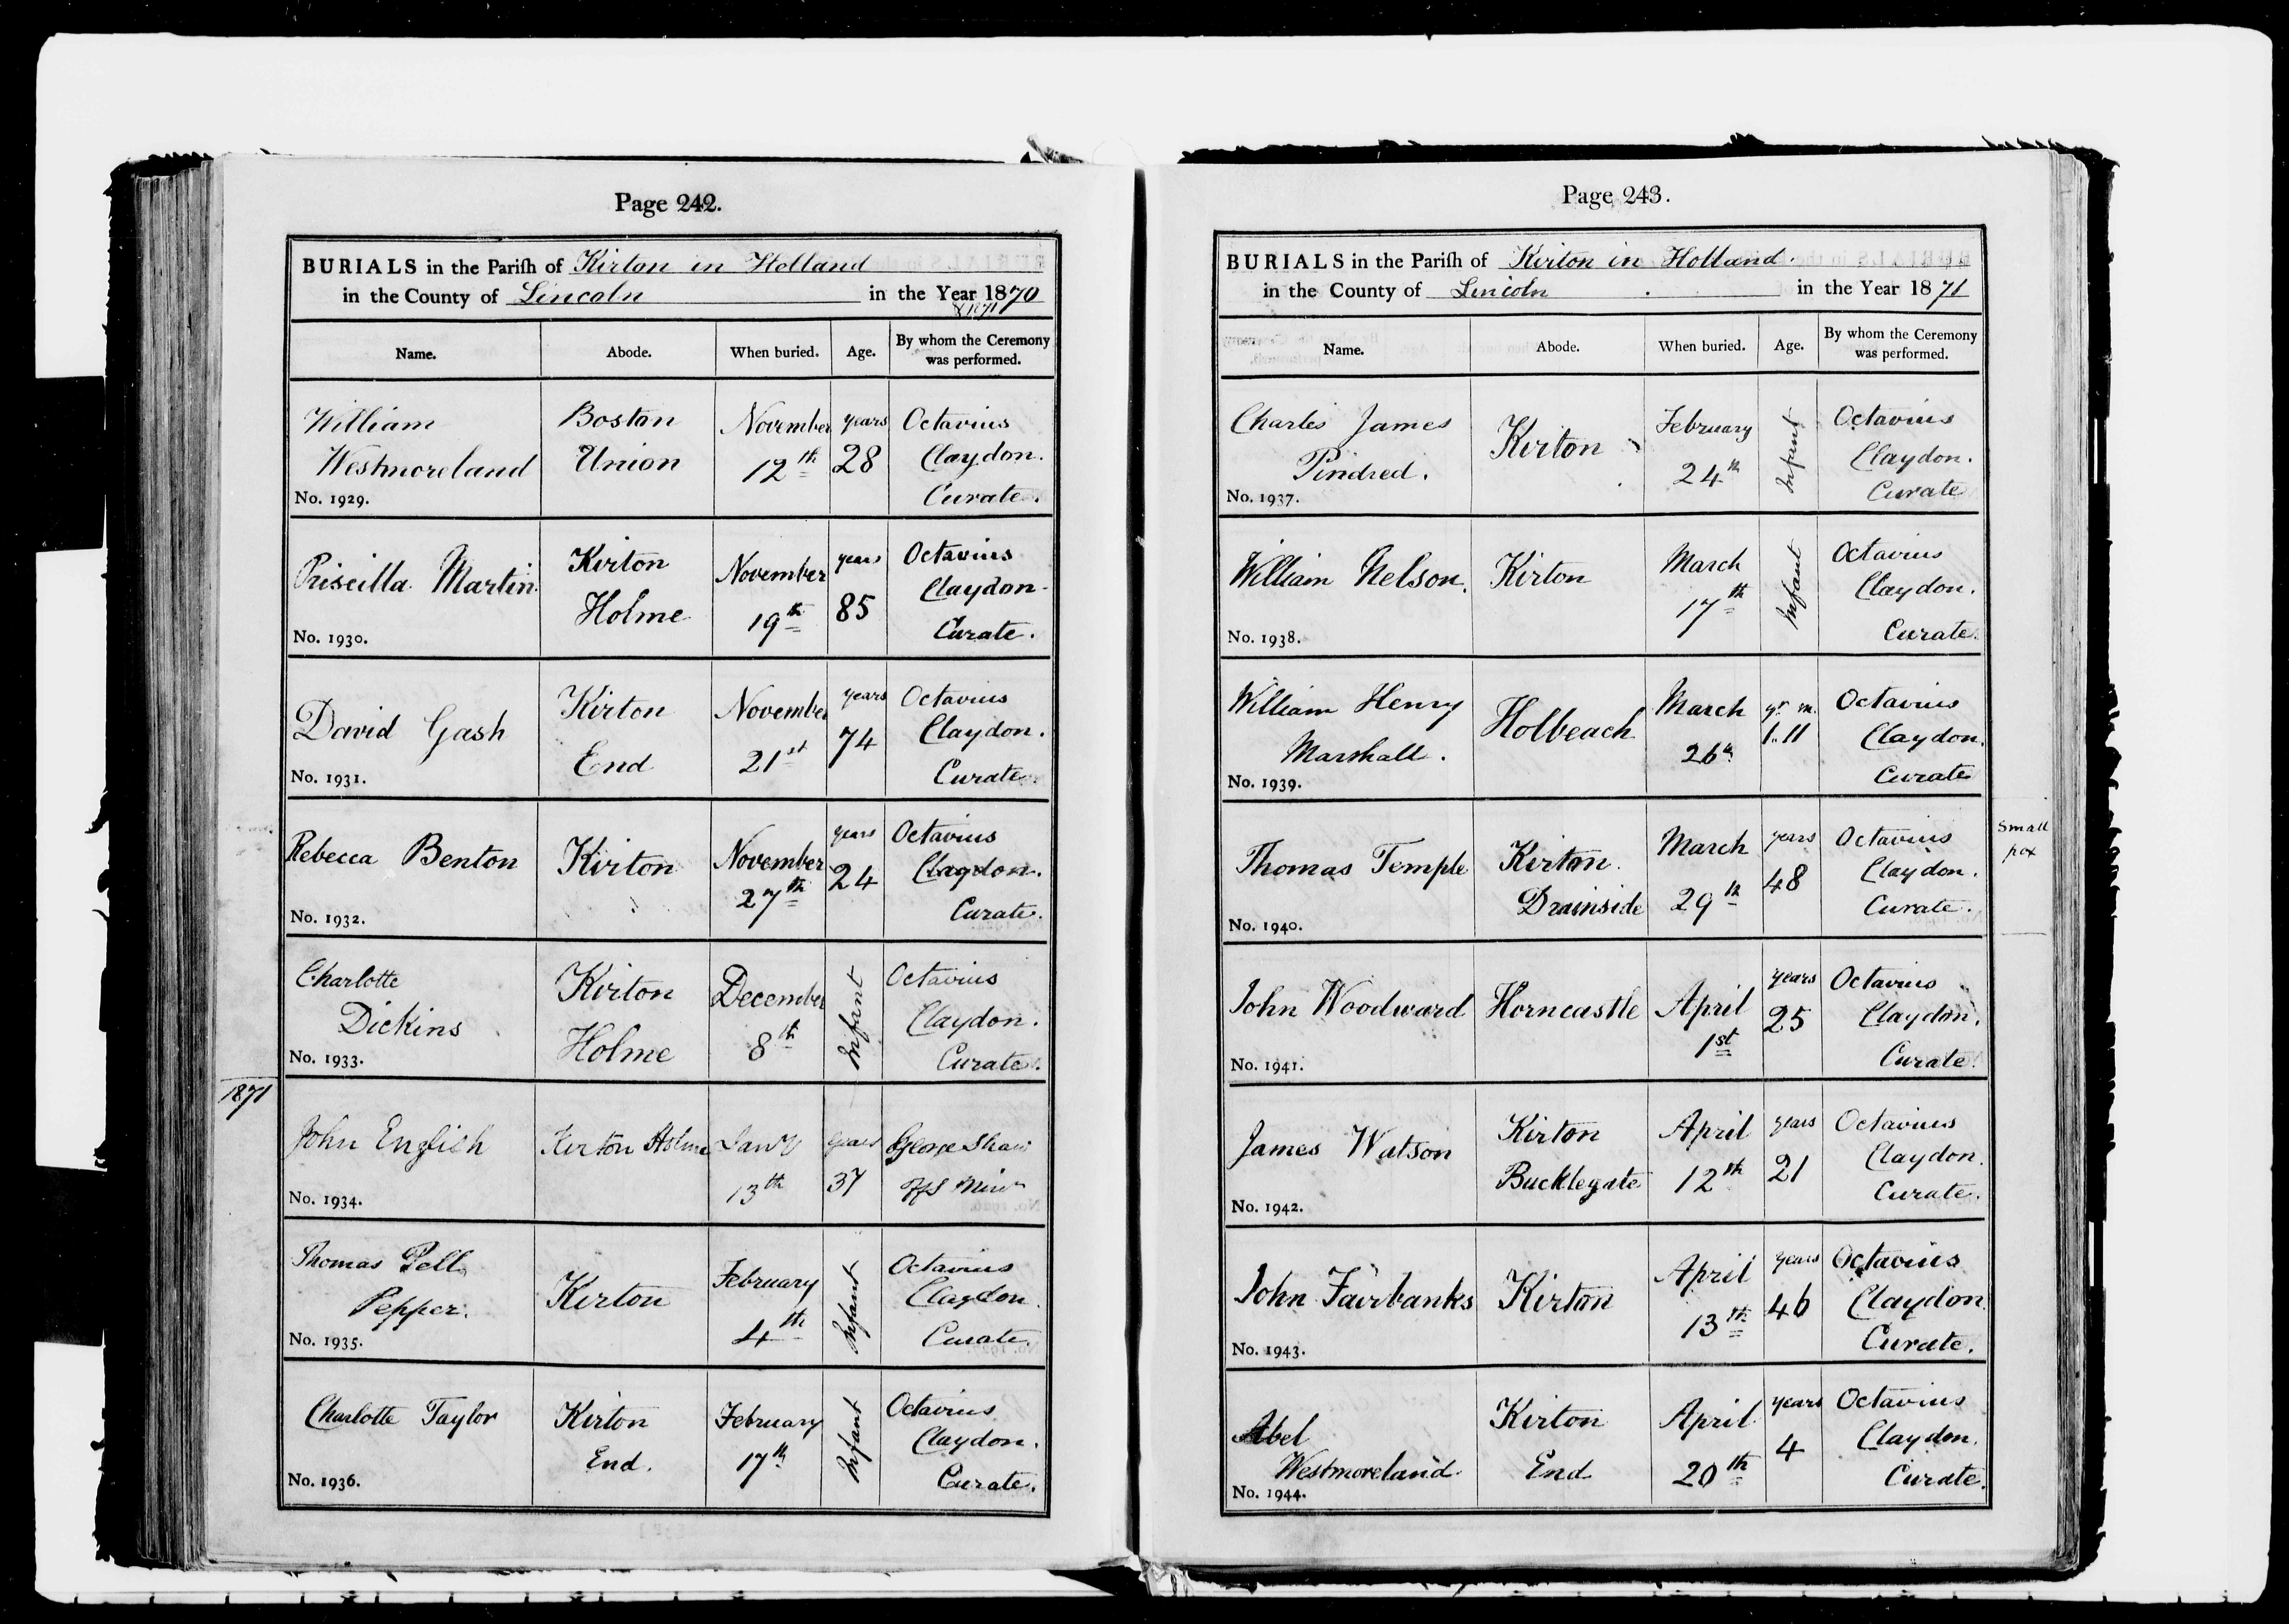 Page 242.
BURIALS in the Pariſh of Kirton in Holland
in the County of Lincoln in the Year 1870
& 1871
Name. Abode. When buried. Age. By whom the Ceremony was performed.
William Westmoreland
Boston Union
November 12th
years 28
Octavius Claydon. Curate.
No. 1929.
Priscilla Martin
Kirton Holme
November 19th
years 85
Octavius Claydon Curate.
No. 1930.
David Gash
Kirton End
November 21st
years 74
Octavius Claydon. Curate
No. 1931.
Rebecca Benton
Kirton
November 27th
years 24
Octavius Claydon. Curate.
No. 1932.
Charlotte Dickins
Kirton Holme
December 8th
Infant
Octavius Claydon. Curate.
No. 1933.
1871
John English
Kirton Holme
Jany 13th
years 37
George Shaw Off Minr
No. 1934.
Thomas Pell Pepper.
Kirton
February 4th
Infant
Octavius Claydon Curate.
No. 1935.
Charlotte Taylor
Kirton End.
February 17th
Infant
Octavius Claydon. Curate.
No. 1936.
Page 243.
BURIALS in the Pariſh of Kirton in Holland.
in the County of Lincoln in the Year 1871
Name. Abode. When buried. Age. By whom the Ceremony was performed.
Charles James Pindred.
Kirton
February 24th
Infant
Octavius Claydon. Curate
No. 1937.
William Nelson.
Kirton
March 17th
Infant
Octavius Claydon. Curate.
No. 1938.
William Henry Marshall.
Holbeach
March 26th
yr m. 1.11
Octavius Claydon. Curate
No. 1939.
Thomas Temple
Kirton Drainside
March 29th
years 48
Octavius Claydon. Curate.
Small pox
No. 1940.
John Woodward
Horncastle
April 1st
years 25
Octavius Claydon. Curate.
No. 1941.
James Watson
Kirton Bucklegate
April 12th
years 21
Octavius Claydon. Curate.
No. 1942.
John Fairbanks
Kirton
April 13th
years 46
Octavius Claydon. Curate.
No. 1943.
Abel Westmoreland
Kirton End
April 20th
years 4
Octavius Claydon. Curate.
No. 1944.